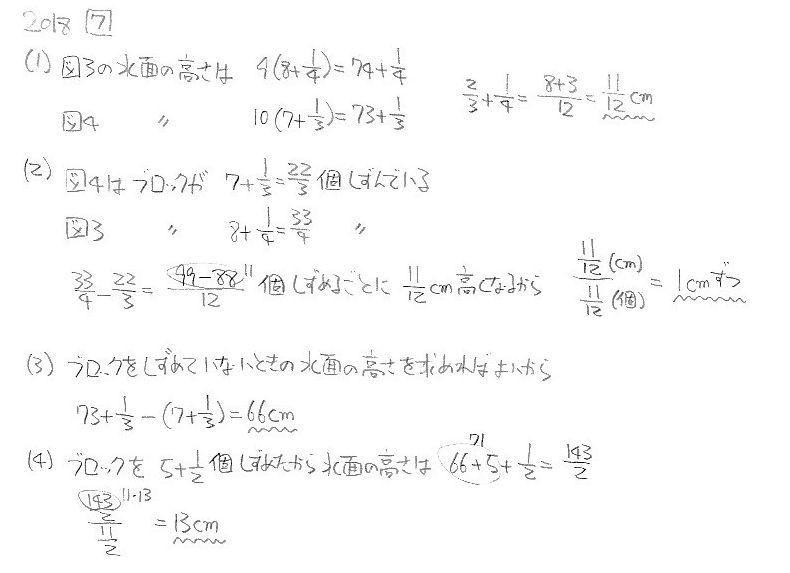 2018 7
(1) 図3の水面の高さは 9(8+1/4)=74+1/4
2/3+1/4=(8+3)/12=11/12cm
図4 〃 10(7+1/3)=73+1/3
(2) 図4はブロックが 7+1/3=22/3個しずんでいる
図3 〃 8+1/4=33/4 〃
33/4-22/3=(99-88)/12 11 個しずめるごとに 11/12cm高くなるから 11/12(cm)/11/12(個)=1cmずつ
(3) ブロックをしずめていないときの水面の高さを求めればよいから
73+1/3-(7+1/3)=66cm
(4) ブロックを 5+1/2個しずめたから水面の高さは 66+5+1/2=143/2 71
143/2/11/2 11・13 =13cm